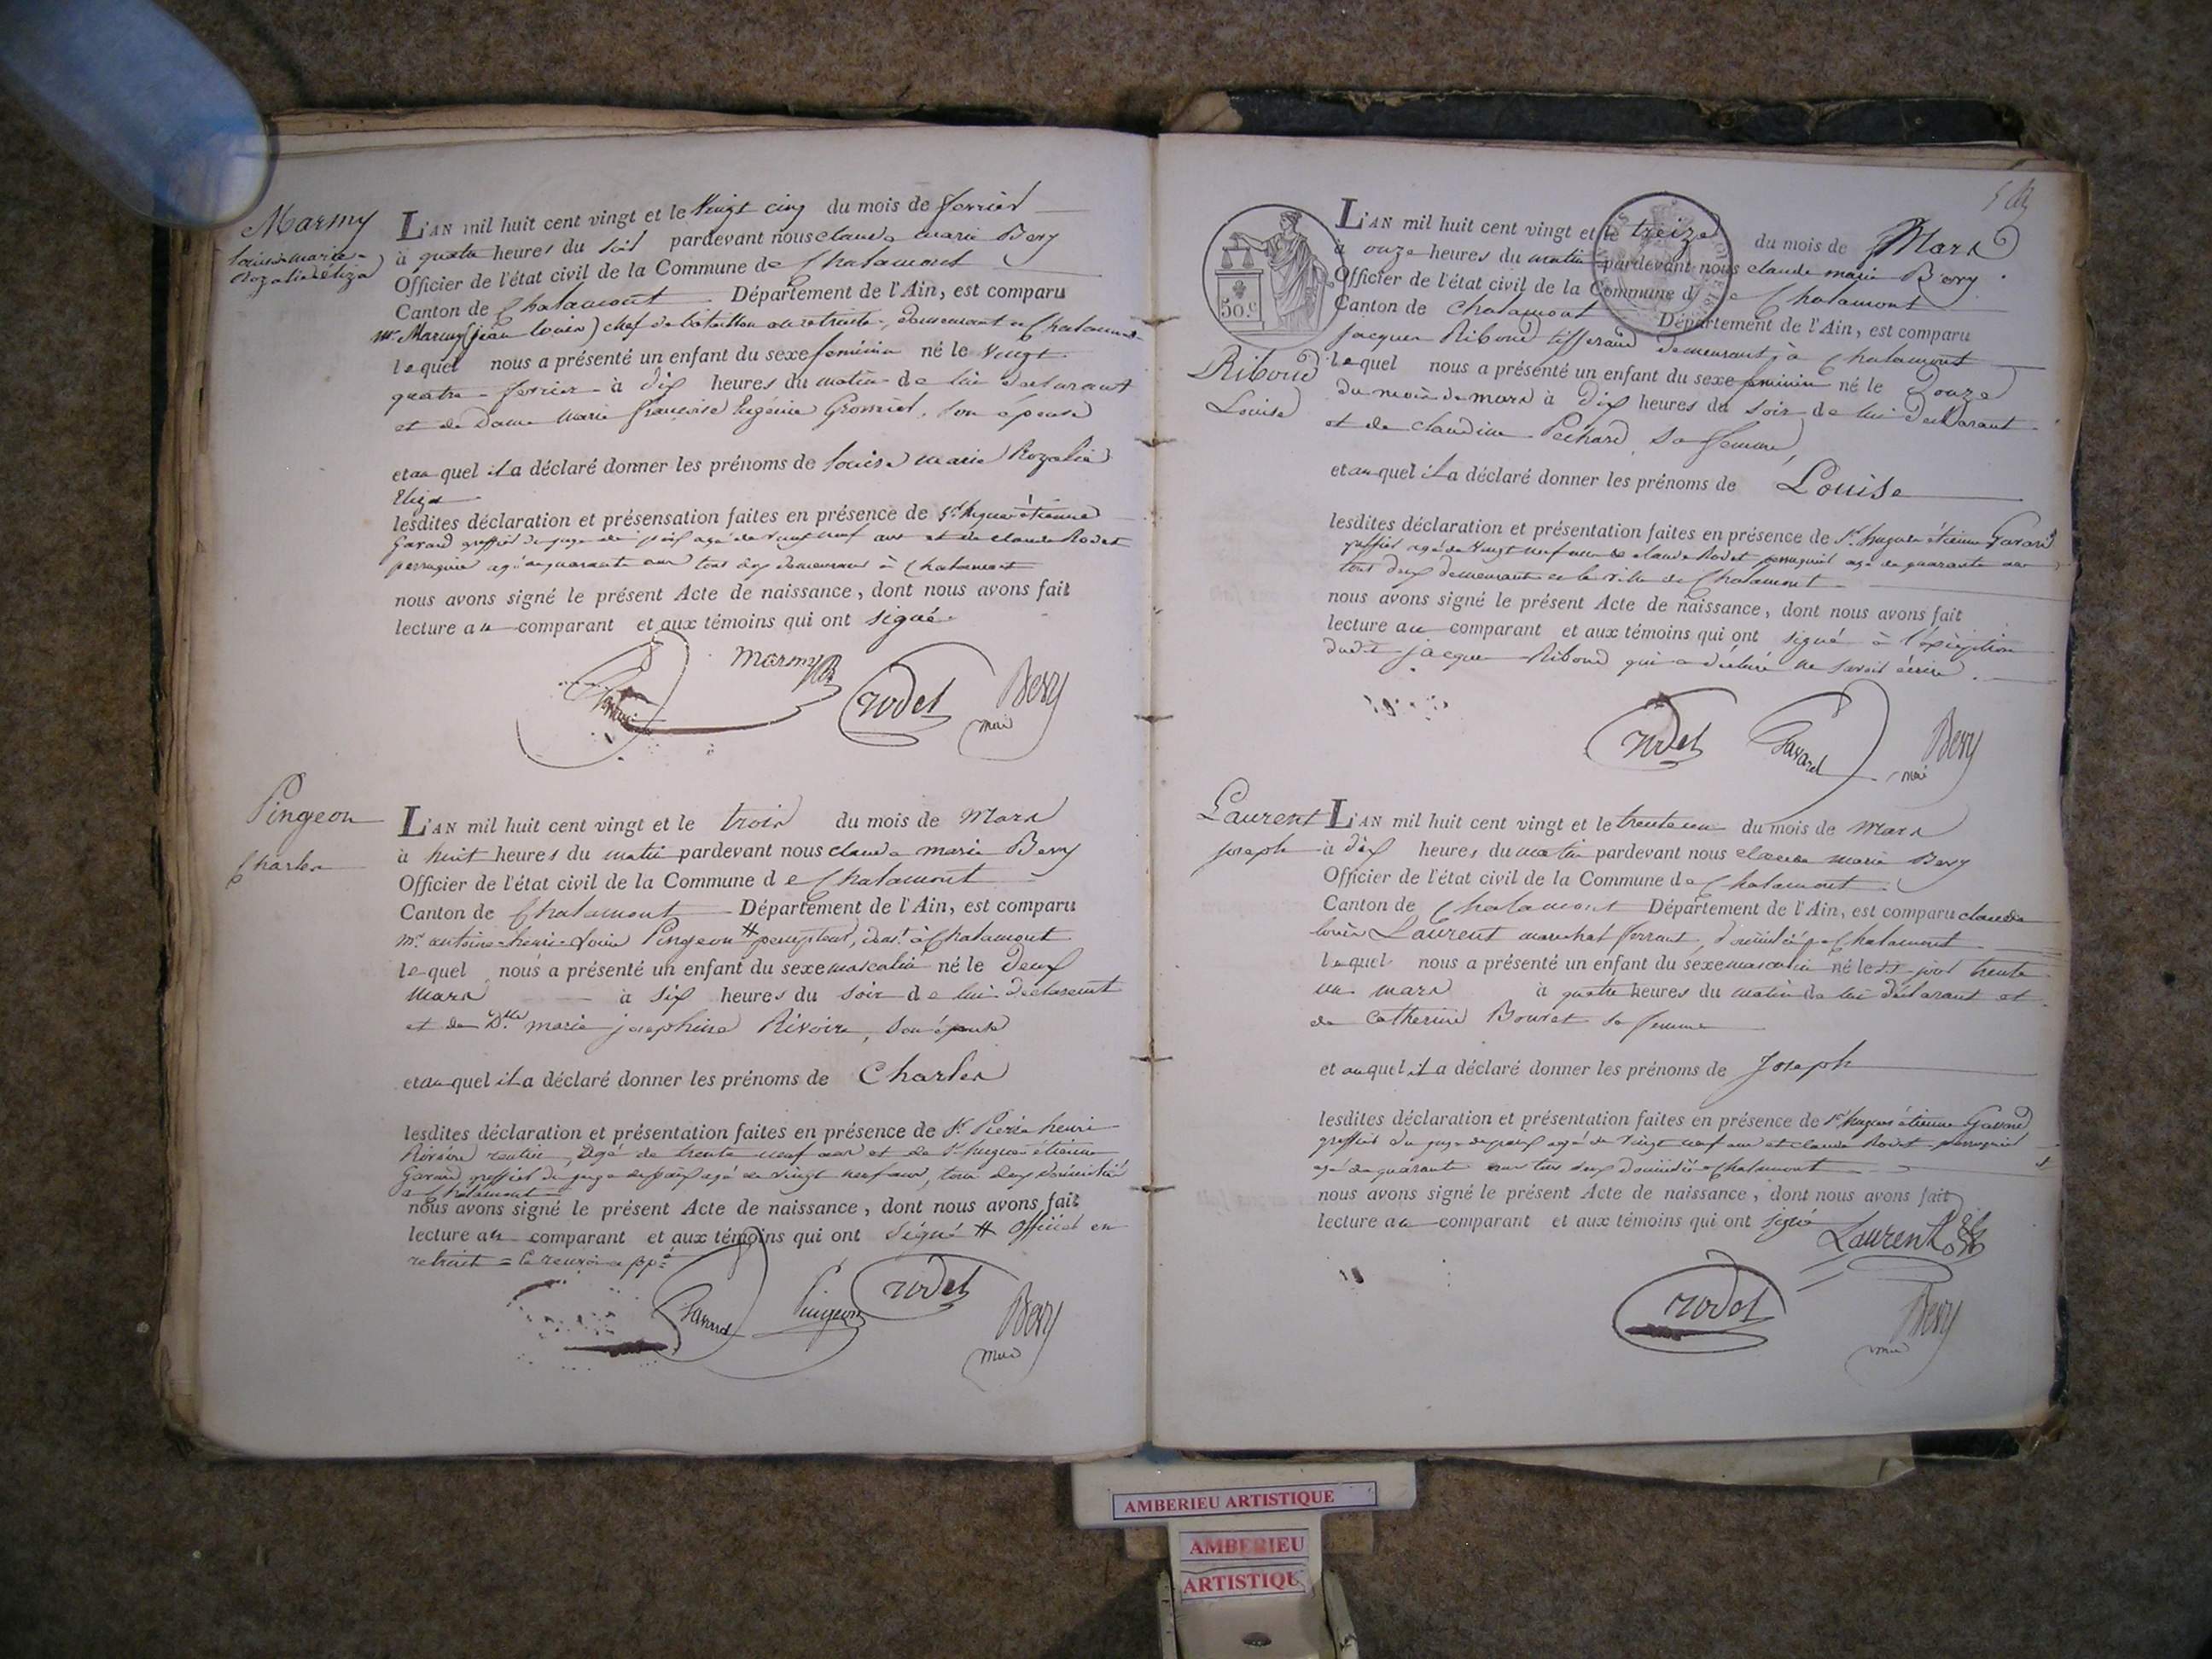 Marmy
Louise marie
Rozalie éliza
L'AN mil huit cent vingt et le Vingt cinq du mois de fevrier
à quatre heures du soir pardevant nous claude marie Bery
Officier de l'état civil de la Commune de Chalamont
Canton de Chalamont Département de l'Ain, est comparu
mr. Marmy (jean louis) chef de bataillon en retraite, demeurant à Chalamont
lequel nous a présenté un enfant du sexe feminin né le Vingt
quatre fevrier à dix heures du matin de lui declarant
et de Dame marie françoise Eugénie son épouse
et au quel il a déclaré donner les prénoms de Louise marie Rozalie
Eliza
lesdites déclaration et présensation faites en présence de Sr. hugues étienne
Gavard greffier du juge de paix agé de vingt neuf ans et de claude Rodet
perruquier agé de quarante ans tous deux demeurant à Chalamont
nous avons signé le présent Acte de naissance, dont nous avons fait
lecture au comparant et aux témoins qui ont signé
Gavard marmy rodet Bery
maire
Pingeon
Charles
L'AN mil huit cent vingt et le trois du mois de Mars
à huit heures du matin pardevant nous claude marie Bery
Officier de l'état civil de la Commune de Chalamont
Canton de Chalamont Département de l'Ain, est comparu
mr. antoine henri louis Pingeon # demt. à Chalamont
lequel nous a présenté un enfant du sexe masculin né le deux
mars à six heures du soir de lui declarant
et de Dlle marie josephine Rivoire, son épouse
et au quel il a déclaré donner les prénoms de Charles
lesdites déclaration et présentation faites en présence de Sr. Pierre henri
Rivoire rentier, agé de trente neuf ans et de Sr. hugues étienne
Gavard greffier du juge de paix agé de vingt neuf ans, tous deux domicilié
à Chalamont
nous avons signé le présent Acte de naissance, dont nous avons fait
lecture au comparant et aux témoins qui ont signé # officier en
retrait = le renvoi app.é
Gavard Pingeon rodet Bery
maire
50.c
L'AN mil huit cent vingt et le treize du mois de Mars
à onze heures du matin pardevant nous claude marie Bery
Officier de l'état civil de la Commune de Chalamont
Canton de Chalamont Département de l'Ain, est comparu
Jacques Riboud tisserand demeurant à Chalamont
Riboud
Louise
lequel nous a présenté un enfant du sexe feminin né le Douze
du mois de mars à dix heures du soir de lui declarant
et de claudine Pechard sa femme
et au quel il a déclaré donner les prénoms de Louise
lesdites déclaration et présentation faites en présence de Sr. hugues étienne Gavard
greffier agé de vingt neuf ans & claude Rodet perruquier agé de quarante ans
tous deux demeurant en la ville de Chalamont
nous avons signé le présent Acte de naissance, dont nous avons fait
lecture au comparant et aux témoins qui ont signé à l'exception
dudit jacque Riboud qui a déclaré ne savoir écrire.
rodet Gavard Bery
maire
Laurent
Joseph
L'AN mil huit cent vingt et le trente un du mois de mars
à dix heures du matin pardevant nous claude marie Bery
Officier de l'état civil de la Commune de Chalamont
Canton de Chalamont Département de l'Ain, est comparu claude
louis Laurent marechal ferrant, domicilié à Chalamont
lequel nous a présenté un enfant du sexe masculin né le dit jour trente
un mars à quatre heures du matin de lui déclarant et
de Catherine Bouvet sa femme
et au quel il a déclaré donner les prénoms de Joseph
lesdites déclaration et présentation faites en présence de Sr. hugues étienne Gavard
greffier du juge de paix agé de vingt neuf ans et claude Rodet perruquier
agé de quarante ans tous deux domicilié à Chalamont
nous avons signé le présent Acte de naissance, dont nous avons fait
lecture au comparant et aux témoins qui ont signé
Laurent
rodet Bery
maire
AMBERIEU ARTISTIQUE
AMBERIEU
ARTISTIQUE